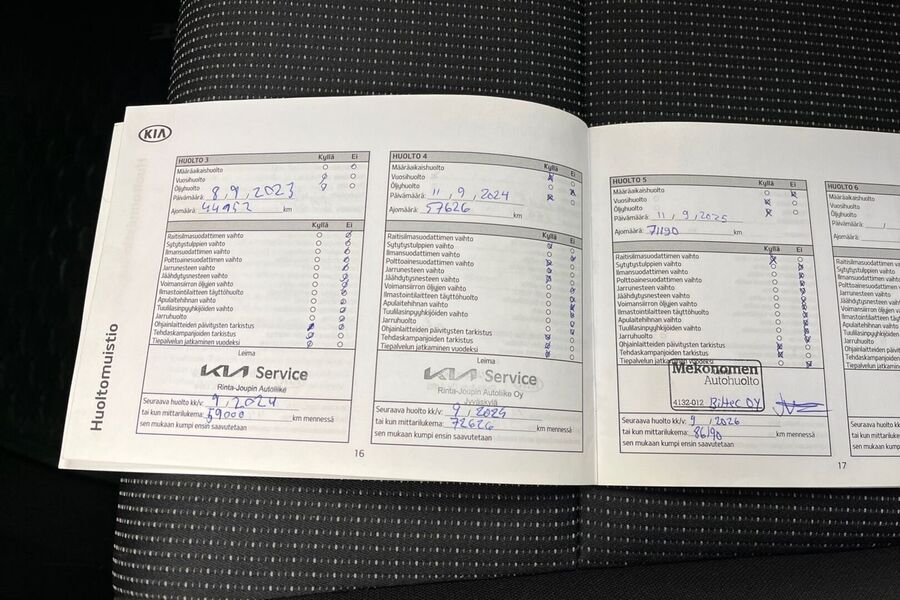 KIA
Huoltomuistio
HUOLTO 3 Kyllä Ei
Määräaikaishuolto
Vuosihuolto
Öljyhuolto
Päivämäärä: 8,9,2023
Ajomäärä: 44952 km
Kyllä Ei
Raitisilmasuodattimen vaihto
Sytytystulppien vaihto
Ilmansuodattimen vaihto
Polttoainesuodattimen vaihto
Jarrunesteen vaihto
Jäähdytysnesteen vaihto
Voimansiirron öljyjen vaihto
Ilmastointilaitteen täyttöhuolto
Apulaitehihnan vaihto
Tuulilasinpyyhkijöiden vaihto
Jarruhuolto
Ohjainlaitteiden päivitysten tarkistus
Tehdaskampanjoiden tarkistus
Tiepalvelun jatkaminen vuodeksi
Leima
KIA Service
Rinta-Joupin Autoliike
Seuraava huolto kk/v: 9,2024
tai kun mittarilukema: 59000 km mennessä
sen mukaan kumpi ensin saavutetaan
16
HUOLTO 4 Kyllä Ei
Määräaikaishuolto
Vuosihuolto
Öljyhuolto
Päivämäärä: 11,9,2024
Ajomäärä: 57626 km
Kyllä Ei
Raitisilmasuodattimen vaihto
Sytytystulppien vaihto
Ilmansuodattimen vaihto
Polttoainesuodattimen vaihto
Jarrunesteen vaihto
Jäähdytysnesteen vaihto
Voimansiirron öljyjen vaihto
Ilmastointilaitteen täyttöhuolto
Apulaitehihnan vaihto
Tuulilasinpyyhkijöiden vaihto
Jarruhuolto
Ohjainlaitteiden päivitysten tarkistus
Tehdaskampanjoiden tarkistus
Tiepalvelun jatkaminen vuodeksi
Leima
KIA Service
Rinta-Joupin Autoliike Oy
Jyväskylä
Seuraava huolto kk/v: 9,2025
tai kun mittarilukema: 72626 km mennessä
sen mukaan kumpi ensin saavutetaan
HUOLTO 5 Kyllä Ei
Määräaikaishuolto
Vuosihuolto
Öljyhuolto
Päivämäärä: 11,9,2025
Ajomäärä: 71190 km
Kyllä Ei
Raitisilmasuodattimen vaihto
Sytytystulppien vaihto
Ilmansuodattimen vaihto
Polttoainesuodattimen vaihto
Jarrunesteen vaihto
Jäähdytysnesteen vaihto
Voimansiirron öljyjen vaihto
Ilmastointilaitteen täyttöhuolto
Apulaitehihnan vaihto
Tuulilasinpyyhkijöiden vaihto
Jarruhuolto
Ohjainlaitteiden päivitysten tarkistus
Tehdaskampanjoiden tarkistus
Tiepalvelun jatkaminen vuodeksi
Mekonomen
Autohuolto
4132-012
Seuraava huolto kk/v: 9,2026
tai kun mittarilukema: 86190 km mennessä
sen mukaan kumpi ensin saavutetaan
17
HUOLTO 6
Määräaikaishuolto
Vuosihuolto
Öljyhuolto
Päivämäärä:
Ajomäärä:
Seuraava huolto
tai kun mittarilukema
sen mukaan kumpi